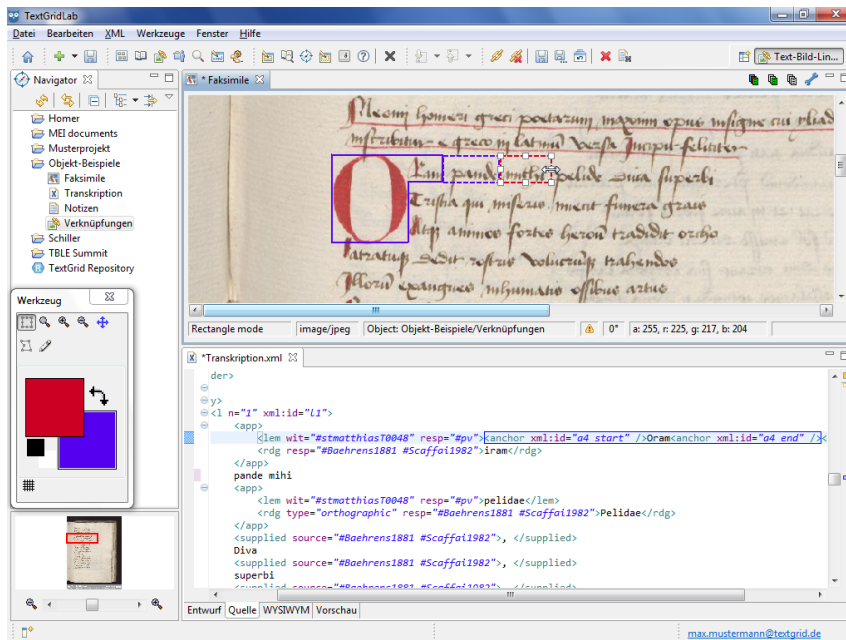 TextGridLab
Datei Bearbeiten XML Werkzeuge Fenster Hilfe
Text-Bild-Lin...
Navigator
Homer
MEI documents
Musterprojekt
Objekt-Beispiele
Faksimile
Transkription
Notizen
Verknüpfungen
Schiller
TBLE Summit
TextGrid Repository
Werkzeug
* Faksimile
homeri greci poetarum opus insigne
Incipit feliciter
pande pelide superbi
Tristia qui miseris funera
fortes tradidit orcho
rostris trahendos
inhumatis ossibus artus
Rectangle mode image/jpeg Object: Objekt-Beispiele/Verknüpfungen 0° a: 255, r: 225, g: 217, b: 204
*Transkription.xml
der>
y>
<l n="1" xml:id="l1">
<app>
<lem wit="#stmatthiasT0048" resp="#pv"><anchor xml:id="a4 start" />Oram<anchor xml:id="a4 end" /><
<rdg resp="#Baehrens1881 #Scaffai1982">iram</rdg>
</app>
pande mihi
<app>
<lem wit="#stmatthiasT0048" resp="#pv">pelidae</lem>
<rdg type="orthographic" resp="#Baehrens1881 #Scaffai1982">Pelidae</rdg>
</app>
<supplied source="#Baehrens1881 #Scaffai1982">, </supplied>
Diva
<supplied source="#Baehrens1881 #Scaffai1982">, </supplied>
superbi
<supplied source="#Baehrens1881 #Scaffai1982">, </supplied>
Entwurf Quelle WYSIWYM Vorschau
max.mustermann@textgrid.de